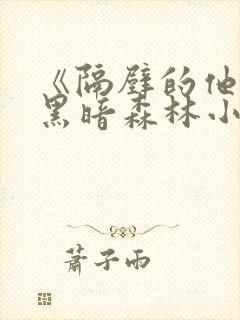 《隔壁的他
黑暗森林小
萧子雨